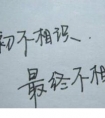 初不相识.
最终不相